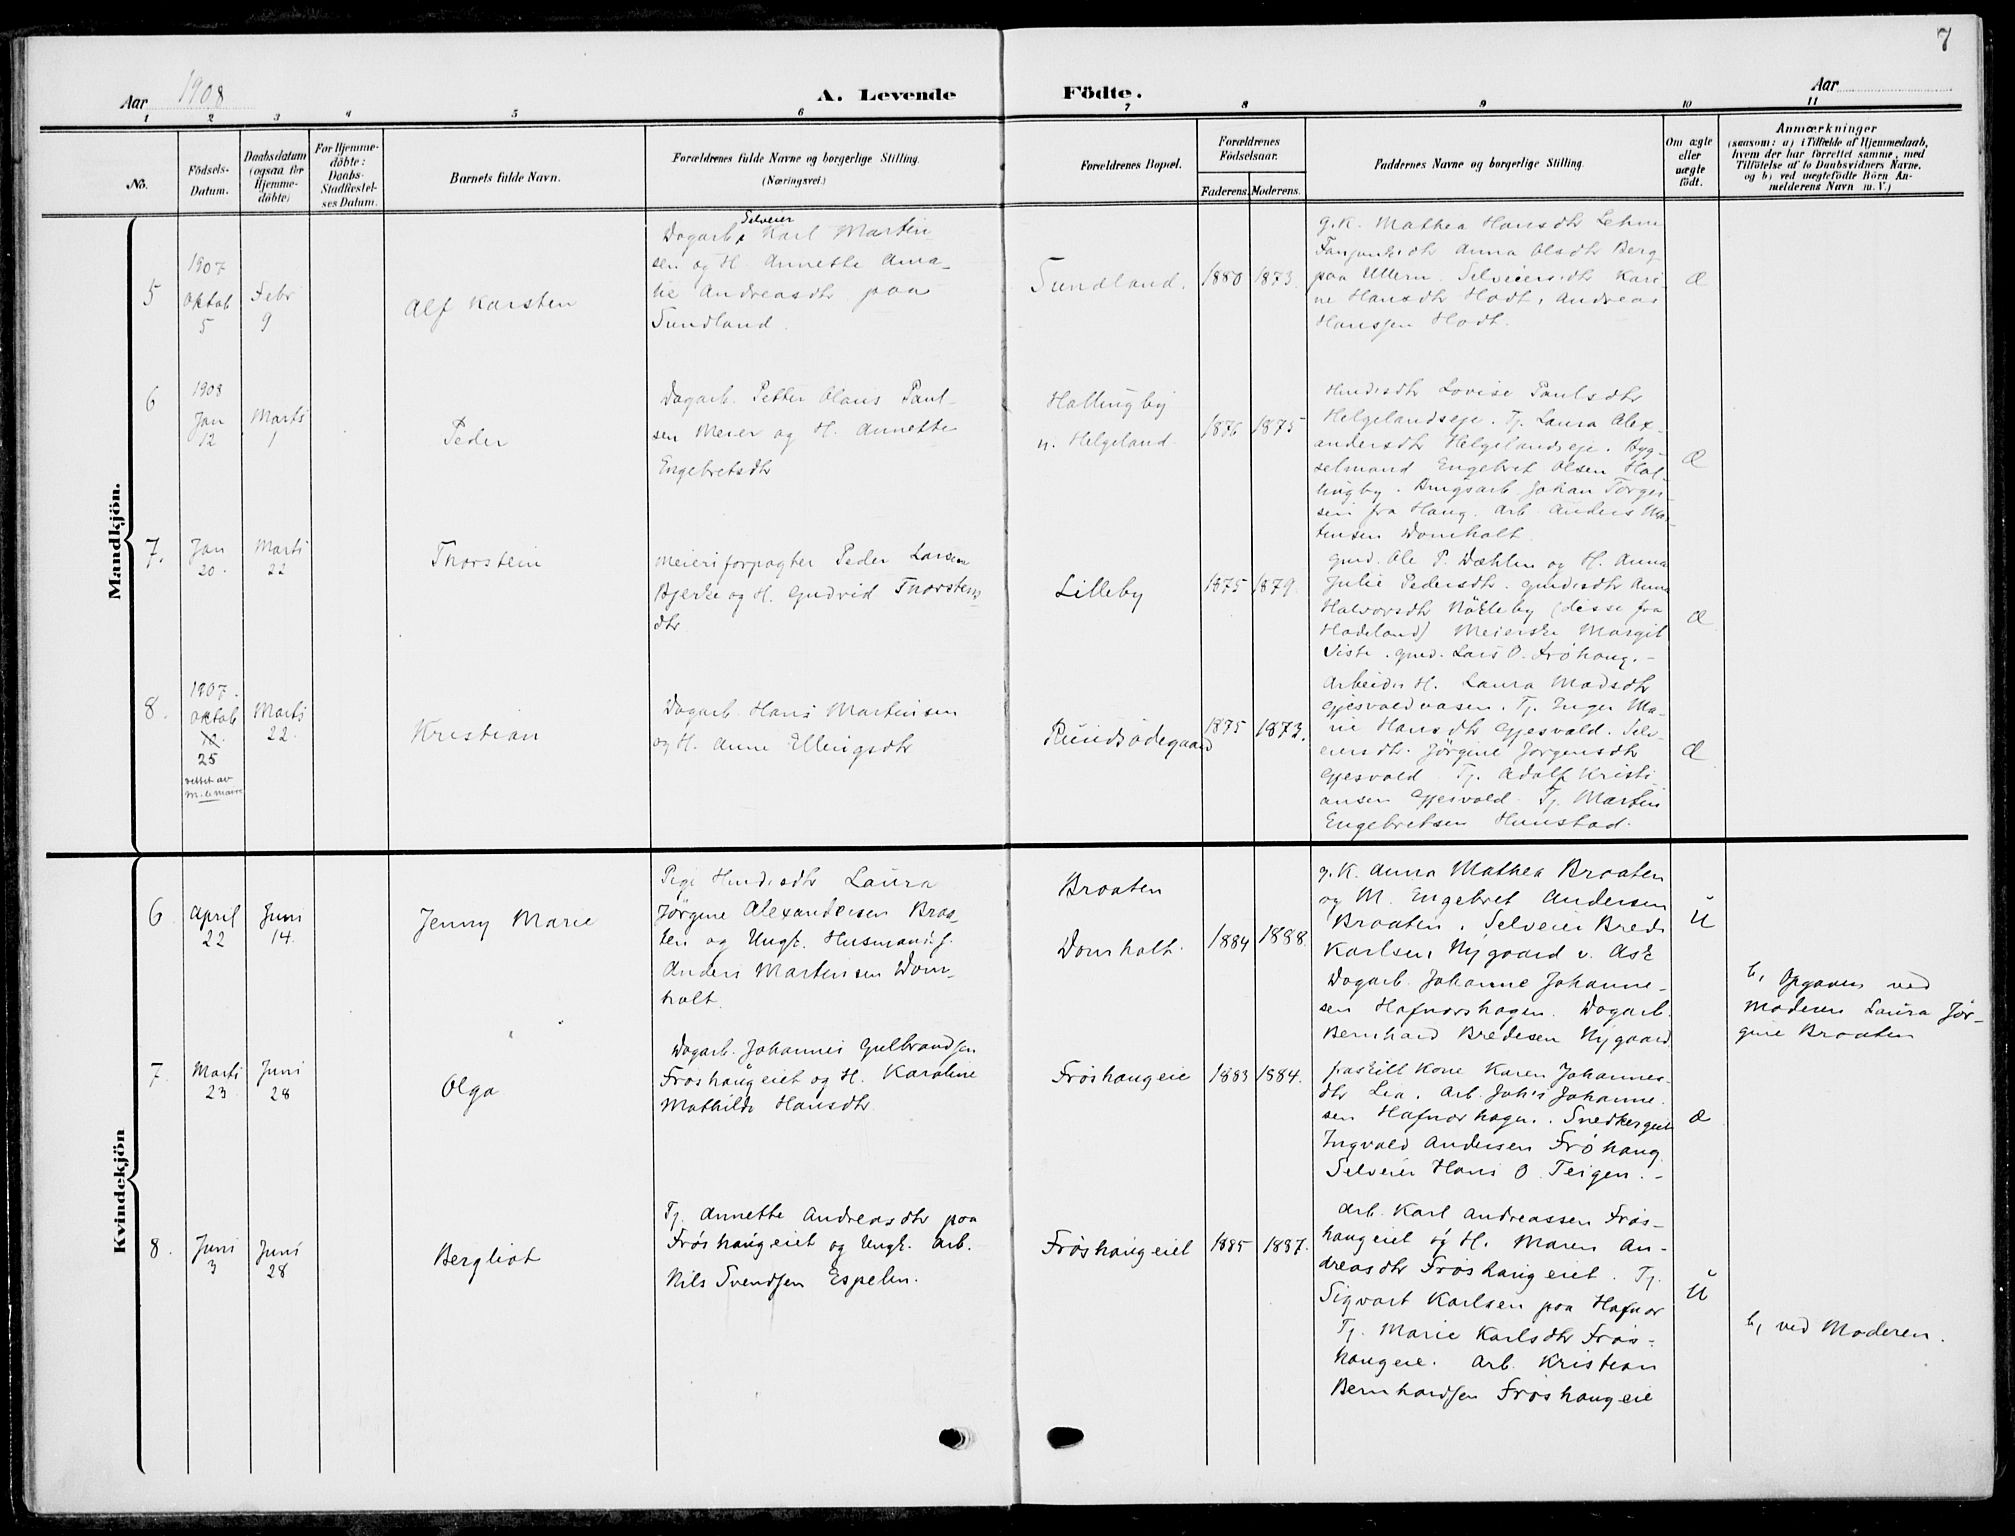 7
Aar 1908
A. Levende Födte.
Aar
1 2 3 4 5 6 7 8 9 10 11
No.
Födsels-
Datum.
Daabsdatum
(ogsaa for
Hjemme-
döbte)
For Hjemme-
döbte:
Daabs-
Stadfæstel-
ses Datum.
Barnets fulde Navn.
Forældrenes fulde Navne og borgerlige Stilling.
(Næringsvei.)
Forældrenes Bopæl.
Forældrenes
Födselsaar.
Faderens. Moderens.
Faddernes Navne og borgerlige Stilling.
Om ægte
eller
uægte
födt.
Anmærkninger
(saasom: a) i Tilfælde af Hjemmedaab,
hvem der har forrettet samme, med
Tilföielse af to Daabsvidners Navne.
og b) ved uægtefödte Börn An-
melderens Navn m. V.)
Mandkjön.
5
1907
Oktob
5
Febr
9
Alf Karsten
Selveier
Dagarb. Karl Martin
sen og H. Annette Ama-
lie Andreasdtr paa
Sundland.
Sundland.
1880 1873.
g. K. Mathea Hansdtr Lehne
Anna Olsdtr Berg
paa Ullern. Selveiersdtr Kari-
ne Hansdtr Hodt, Andreas
Hanssen Hodt.
Æ
6
1908
Jan
12
Marts
1
Peder
Dagarb. Petter Olaus Paul-
sen Meier og H. Annette
Engebretsdtr
Hallingby
u. Helgeland
1876 1875
Husm.dtr Lovise Paulsdtr
Helgelandseje. Tj. Laura Alex-
andersdtr Helgelandseje. Byg-
selmand Engebret Olsen Hal-
lingby. Brugsarb. Johan Torger
sen fra Haug. Arb. Anders Mar-
tinsen Domholt.
Æ
7.
Jan
20.
Marts
22
Thorstein
Meieriforpagter Peder Larsen
Bjerke og H. Gudrid Thorstens
dtr
Lilleby
1875 1879.
Gmd. Ole P. Dæhlen og H. Anna
Julie Pedersdtr. Gmdsdtr Anna
Halvorsdtr Nökleby (disse fra
Hadeland) Meierske Margit
Siste. Gmd. Lars O. Fröhaug.-
Æ
8.
1907.
Oktob
12.
25
rettet av
Marts
22.
Kristian
Dagarb. Hans Martinsen
og H. Anne Ellingsdtr
Rundsödegaard
1875 1873.
Arbeider H. Laura Madsdtr
Gjesvaldaasen. Tj. Inger Ma-
rie Hansdtr Gjesvald. Selv-
eiersdtr. Jörgine Jorgensdtr
Gjesvald. Tj. Adolf Kristi-
ansen Gjesvold. Tj. Martin
Engebretsen Hunstad.
Æ
Kvindekjön
6
April
22
Juni
14.
Jenny Marie
Pige Husm.dtr Laura
Jörgine Alexandersen Braa-
ten og Ungk. Husmands.
Anders Martinsen Dom-
holt.
Braaten
Domholt.
1884 1888.
g. K. Anna Mathea Braaten
og M. Engebret Andersen
Braaten. Selveier Brede
Karlsen, Nygaard v. Ask
Dagarb. Johanne Johanne-
sen Hafnorshagen. Dagarb.
Bernhard Bredesen Nygaard.
U
b, Opgaven ved
Moderen Laura Jör-
gine Braaten
7.
Marts
23
Juni
28
Olga
Dagarb. Johannes Gulbrandsen
Fröshaugeiet og H. Karoline
Mathilde Hansdtr.
Fröshaugeie
1883 1884.
fraskilt Kone Karen Johannes-
dtr Lia. Arb. Johs Johanne-
sen Hafnorhagen. Snedkergut
Ingvald Andersen Fröhaug.
Selveier Hans O. Teigen.-
Æ
8.
Juni
3
Juni
28
Bergliot
Tj. Annette Andreasdtr paa
Fröshaugeiet og Ungk. Arb.
Nils Svendsen Espelien.
Fröshaugeiet
1885 1887.
Arb. Karl Andreassen Frös-
haugeiet og H. Maren An-
dreasdtr Fröshaugeiet. Tj.
Sigvart Karlsen paa Hafnor
Tj. Marie Karlsdtr Frös-
haugeie. Arb. Kristian
Bernhardsen Fröshaugeie
U
b, ved Moderen.